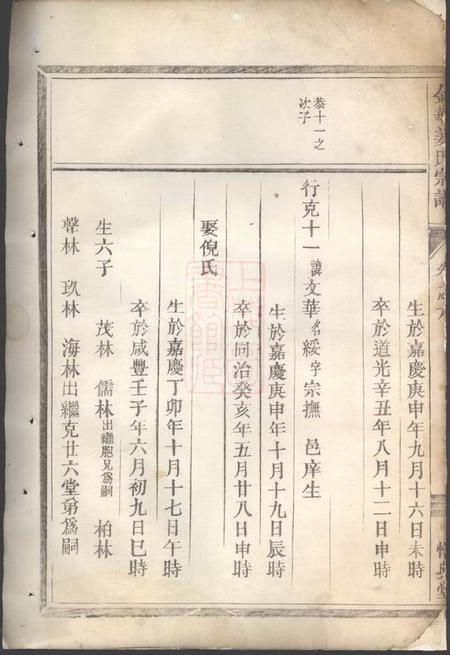 金華姜氏宗譜
生於嘉慶庚申年九月十六日未時
卒於道光辛丑年八月十二日申時
恭十一之次子
行克十一諱文華名綏字宗撫邑庠生
生於嘉慶庚申年十月十九日辰時
卒於同治癸亥年五月廿八日申時
娶倪氏
生於嘉慶丁卯年十月十七日午時
卒於咸豐壬子年六月初九日巳時
生六子 茂林 儒林出繼胞兄爲嗣 柏林
聲林 玖林 海林出繼克廿六堂弟爲嗣